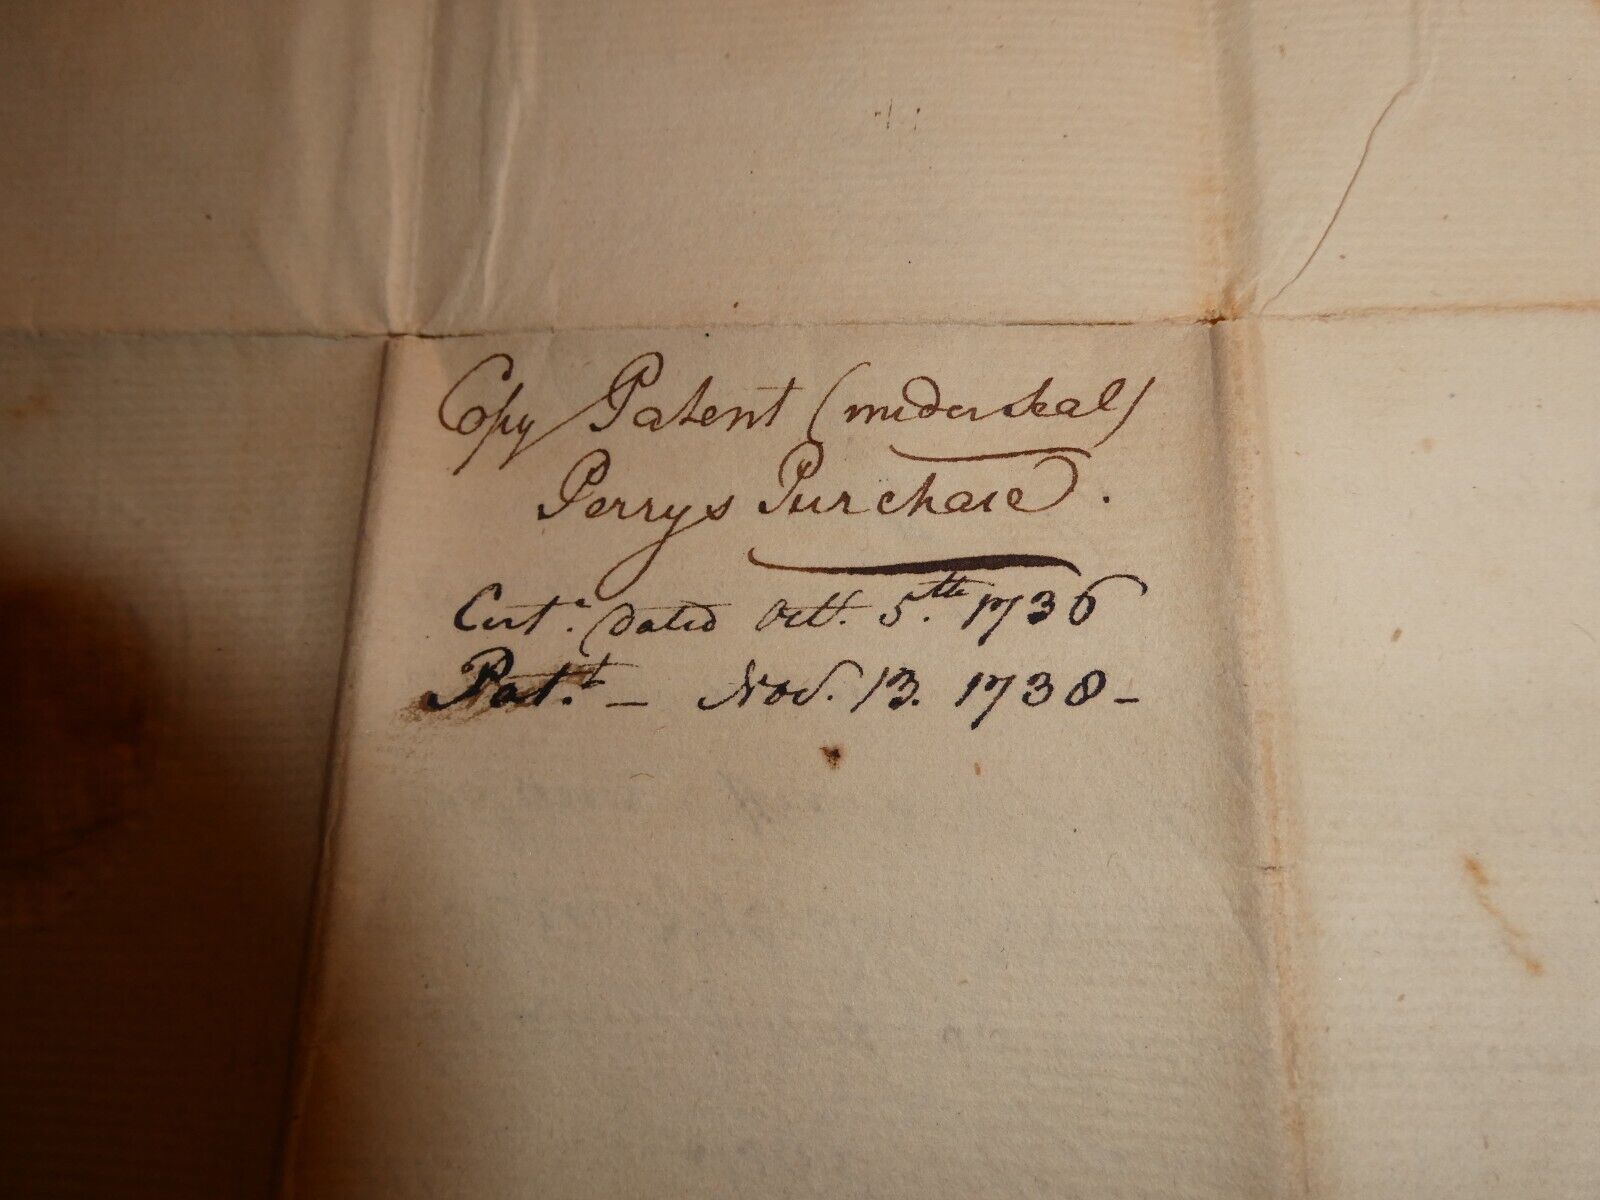 Copy Patent (under seal)
Perrys Purchase.
Cert.e dated Octr. 5.th 1736
Pat.t – Nov. 13. 1738 –